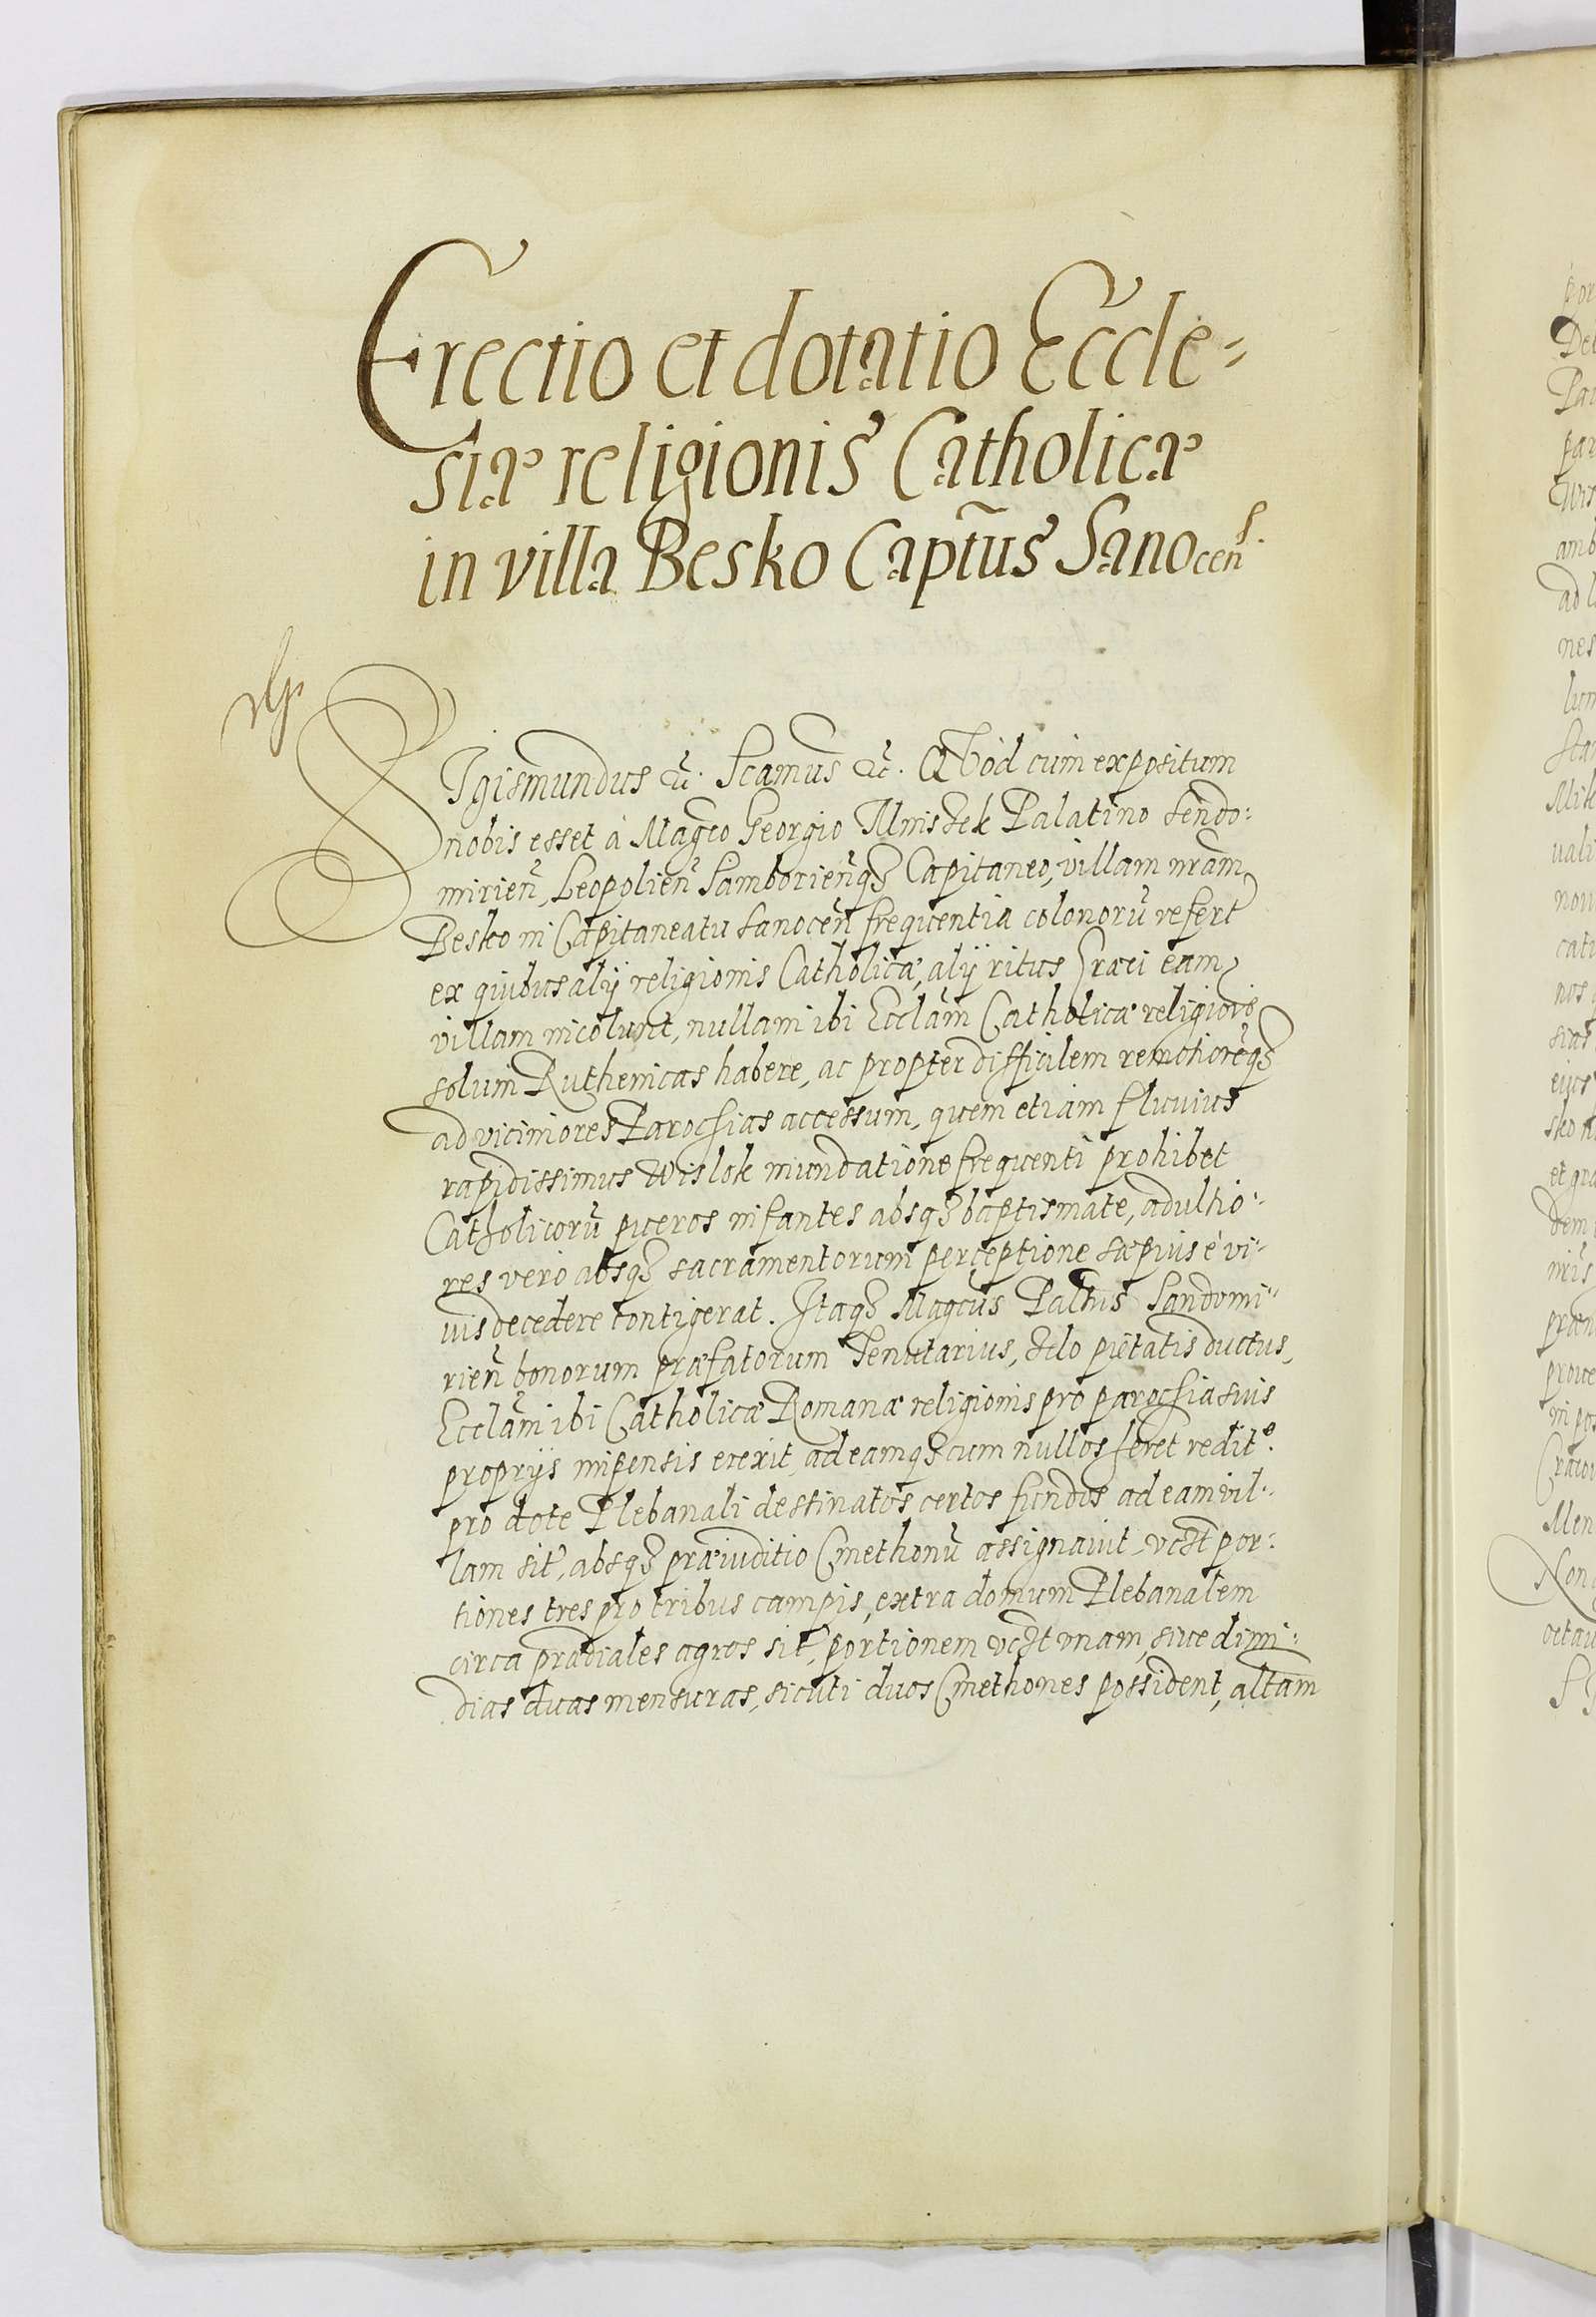 Erectio et dotatio Eccle=
siæ religionis Catholicæ
in villa Besko Captũs Sanocen̄.
SIgismundus &c̃. Scamus &c̃. QVod cum expositum
nobis esset à Magco Georgio Mniszek Palatino Sendo:
mirień, Leopolień Samborieńqȝ Capitaneo, villam nr̃am
Besko in Capitaneatu Sanoceń frequentia colonorũ refert
ex quibus alÿ religionis Catholicæ, alÿ ritus Græci eam
villam incolunt, nullam ibi Ecclãm Catholicæ religionis
solum Ruthenicas habere, ac propter difficilem remotiorẽqȝ
ad viciniores Parochias accessum, quem etiam fluuius
rapidissimus Wislok inundatione frequenti prohibet
Catholicorũ pueros infantes absqȝ baptismate, adultio-
res verò absqȝ sacramentorum perceptione sæpius è vi-
uis decedere contigerat. Itaqȝ Magcus Paltnus Sandomi-
rień bonorum præfatorum Tenutarius, zelo pietatis ductus,
Ecclãm ibi Catholicæ Romanæ religionis pro parochia suis
proprÿs impensis erexit, ad eamqȝ cum nullos heret reditᵉ.
pro dote Plebanali destinatos certos fundos ad eam vil-
lam sit̃, absqȝ præiuditio Cmethonũ assignauit, vczt por:
tiones tres pro tribus campis, extra domum Plebanalem
circa prædiales agros sit̃, portionem vczt vnam, siue dimi:
dias duas mensuras, sicuti duos Cmethones possident, altãm
por
De
Pa
par
Wis
amb
ad l
nes
Mik
uali
nou
cati
nos
sias
eius
sko
et gra
dem
nr̃is
proue
in pos
Craco
Men
Non
octau